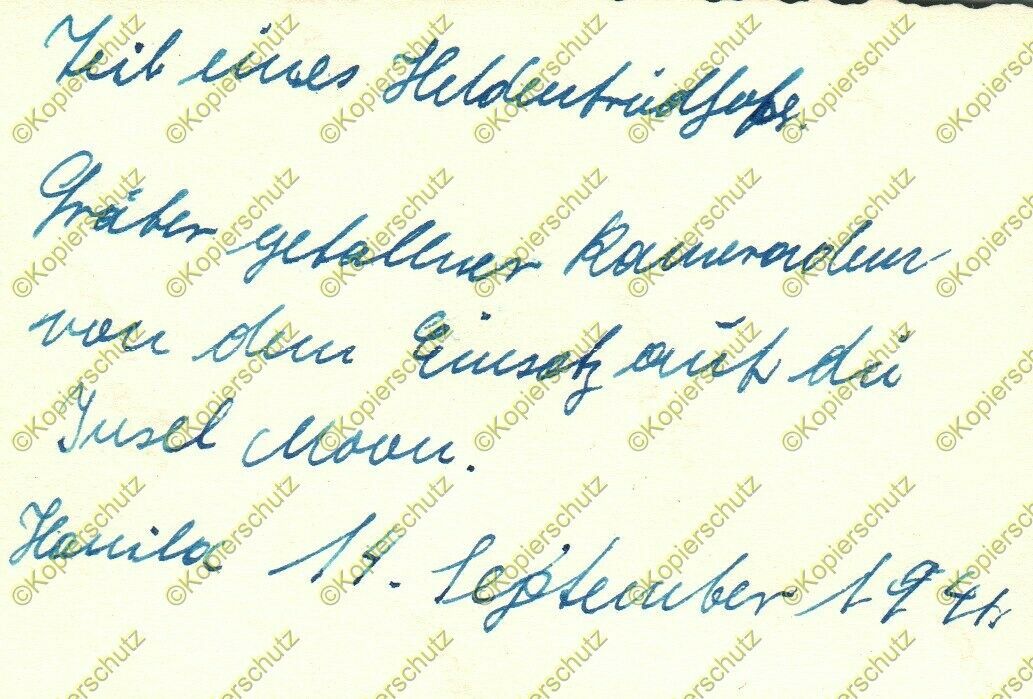 Teil eines Heldenfriedhofs.
Gräber gefallener Kameraden
von dem Einsatz auf die
Insel Moon.
Hanila 17. September 1941.
©Kopierschutz